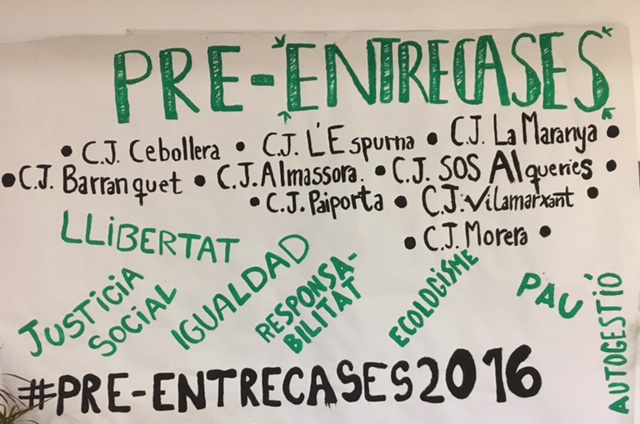 PRE-ENTRECASES
• C.J. Cebollera • C.J. L'Espurna • C.J. La Maranya •
• C.J. Barranquet • C.J. Almassora. • C.J. SOS Alqueries •
• C.J. Paiporta • C.J. Vilamarxant •
• C.J. Morera •
LLIBERTAT
JUSTICIA
SOCIAL
IGUALDAD
RESPONSA-
BILITAT
ECOLOGISME
PAU
AUTOGESTIÓ
#PRE-ENTRECASES2016